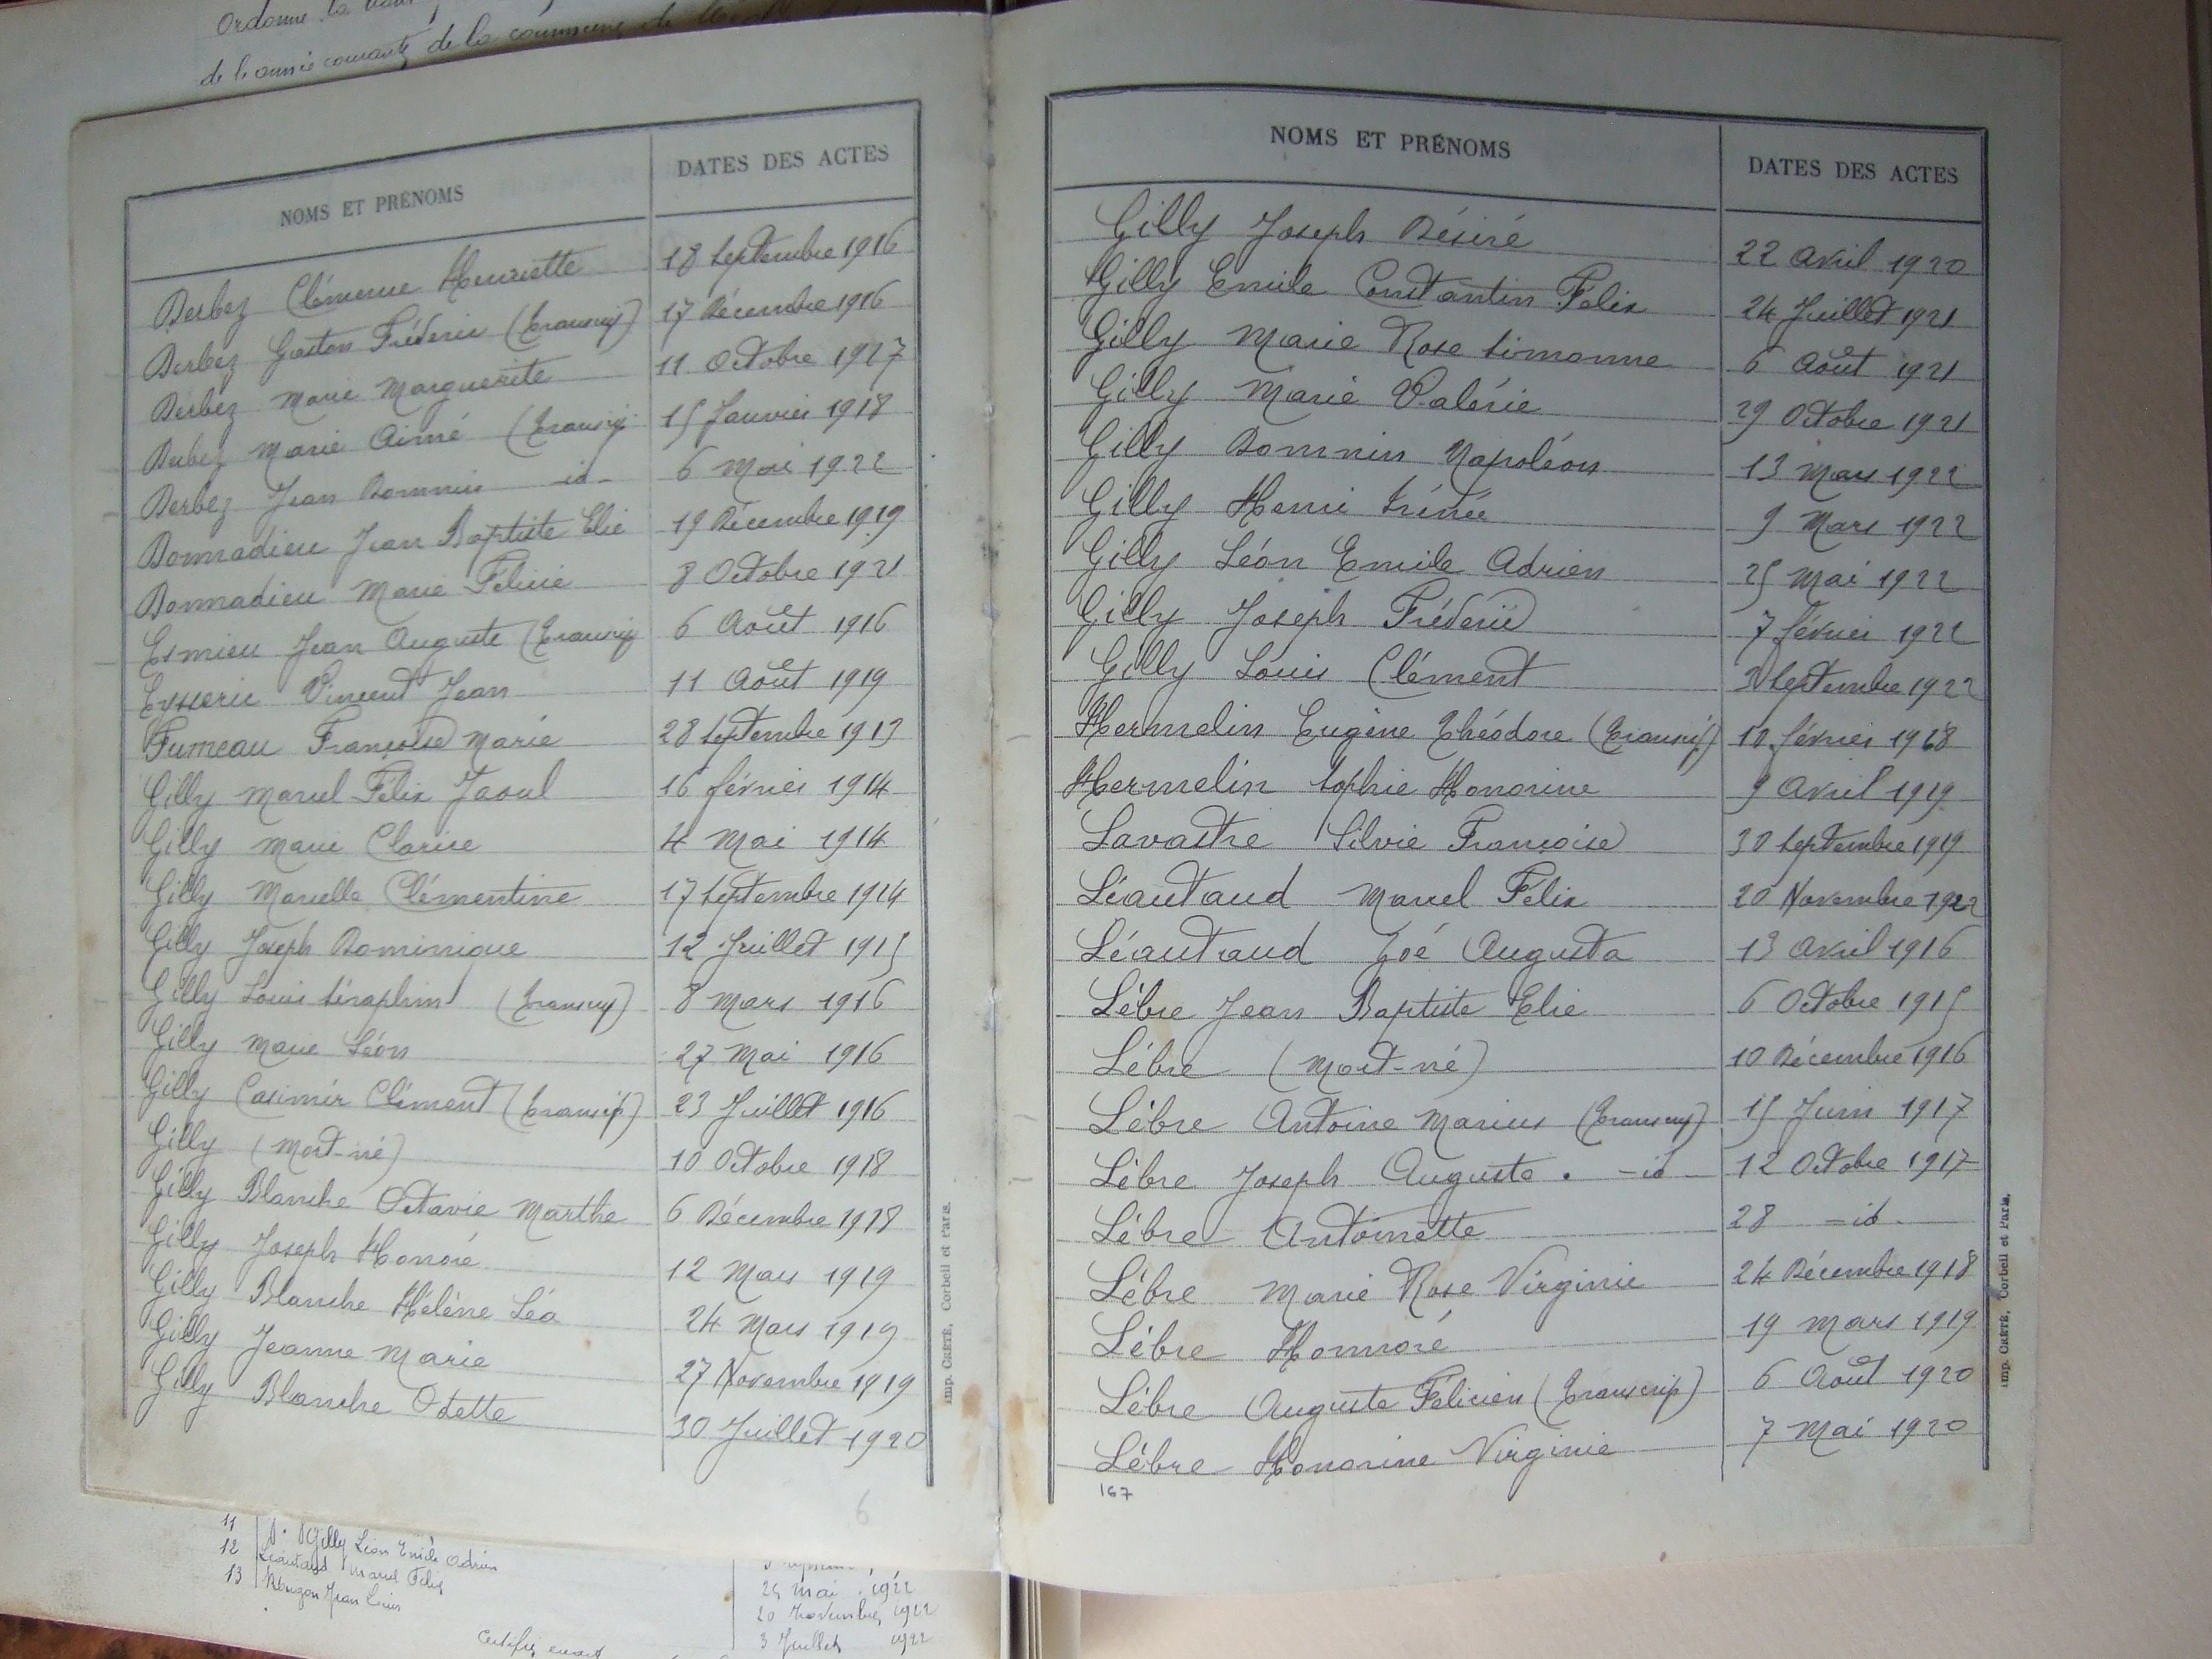 Ordonne la
de l'année courante, de la commune de
NOMS ET PRÉNOMS DATES DES ACTES
Derbez Clémence Henriette 18 Septembre 1916
Derbez Gaston Fréderic (transcrip) 17 Décembre 1916
Derbez Marie Marguerite 11 Octobre 1927
Derbez Marie Aimé (transcrip 15 Janvier 1918
Derbez Jean Domnin -id- 6 Mai 1922
Donnadieu Jean Baptiste Elie 19 Décembre 1919
Donnadieu Marie Felicie 8 Octobre 1921
Esmieu Jean Auguste (transcrip 6 Août 1916
Eysseric Vincent Jean 11 Août 1919
Fumeau Françoise Marie 28 Septembre 1913
Gilly Marcel Félix Jaoul 16 février 1914
Gilly Marie Clarise 4 Mai 1914
Gilly Marcelle Clémentine 17 Septembre 1914
Gilly Joseph Dominique 12 Juillet 1915
Gilly Louis Séraphin (transcrip) 8 Mars 1916
Gilly Marie Léon 27 Mai 1916
Gilly Casimir Clément (transcrip) 23 Juillet 1916
Gilly (Mort-né) 10 Octobre 1918
Gilly Blanche Octavie Marthe 6 Décembre 1918
Gilly Joseph Honoré 12 Mars 1919
Gilly Blanche Hélène Léa 24 Mars 1919
Gilly Jeanne Marie 27 Novembre 1919
Gilly Blanche Odette 30 Juillet 1920
Imp. CRÉTÉ, Corbeil et Paris.
6
NOMS ET PRÉNOMS DATES DES ACTES
Gilly Joseph Désiré 22 Avril 1920
Gilly Emile Constantin Felix 24 Juillet 1921
Gilly Marie Rose Simonne 6 Août 1921
Gilly Marie Valérie 29 Octobre 1921
Gilly Domnin Napoléon 13 Mars 1922
Gilly Henri Irénée 9 Mars 1922
Gilly Léon Emile Adrien 25 Mai 1922
Gilly Joseph Fréderic 7 février 1922
Gilly Louis Clément 3 Septembre 1922
Hermelin Eugène Théodore (transcrip) 10 février 1918
Hermelin Sophie Honorine 9 Avril 1919
Lavastre Silvie Françoise 30 Septembre 1919
Léautaud Marcel Felix 20 Novembre 1922
Léautaud Zoé Augusta 13 Avril 1916
Lèbre Jean Baptiste Elie 6 Octobre 1915
Lèbre (Mort-né) 10 Décembre 1916
Lèbre Antoine Marius (transcrip) 15 Juin 1917
Lèbre Joseph Auguste. -id- 12 Octobre 1917
Lèbre Antoinette 28 -id-
Lèbre Marie Rose Virginie 24 Décembre 1918
Lèbre Honnoré 19 Mars 1919
Lèbre Auguste Félicien (transcrip) 6 Août 1920
Lèbre Honorine Virginie 7 Mai 1920
167
Imp. CRÉTÉ, Corbeil et Paris.
11 Gilly Léon Emile Adrien 25 Mai 1922
12 Léautaud Marcel Felix 20 Novembre 1922
13 Jean Louis 3 Juillet 1922
Certifié exact